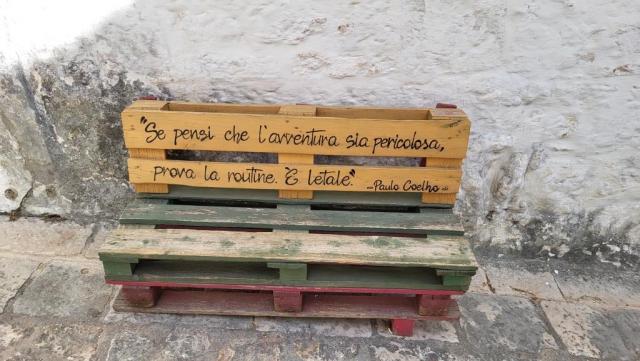 "Se pensi che l'avventura sia pericolosa,
prova la routine. È letale" -Paulo Coelho-